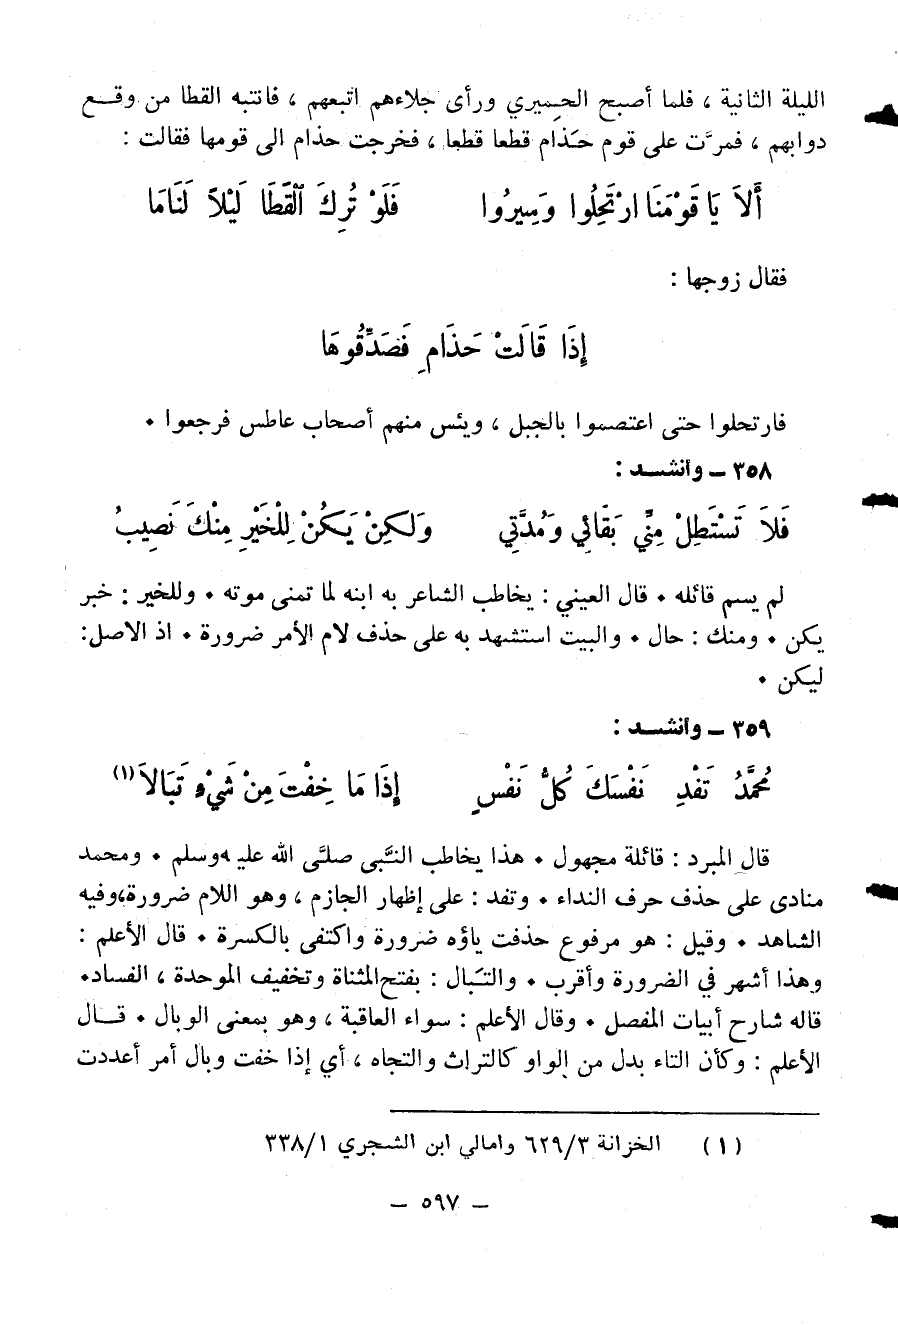 الليلة الثانية ، فلما أصبح الحِميري ورأى جلاءهم اتبعهم ، فانتبه القطا من وقــع
دوابهم ، فمرَّت على قوم حَذام قطعا قطعا ، فخرجت حذام الى قومها فقالت :
أَلاَ يَا قَوْمَنَا ارْتَحِلُوا وَسِيرُوا فَلَوْ تُرِكَ ٱلْقَطَا لَيْلاً لَنَامَا
فقال زوجها :
إِذَا قَالَتْ حَذَامِ فَصَدِّقُوهَا
فارتحلوا حتى اعتصموا بالجبل ، ويئس منهم أصحاب عاطس فرجعوا ٠
٣٥٨ ــ وأنشــد :
فَلاَ تَسْتَطِلْ مِنِّي بَقَائِي وَمُدَّتِي وَلَكِنْ يَكُنْ لِلْخَيْرِ مِنْكَ نَصِيبُ
لم يسم قائله ٠ قال العيني : يخاطب الشاعر به ابنه لما تمنى موته ٠ وللخير : خبر
يكن ٠ ومنك : حال ٠ والبيت استشهد به على حذف لام الأمر ضرورة ٠ اذ الاصل:
ليكن ٠
٣٥٩ ــ وأنشــد :
مُحَمَّدُ تَفْدِ نَفْسَكَ كُلُّ نَفْسٍ إِذَا مَا خِفْتَ مِنْ شَيْءٍ تَبَالاَ(١)
قال المبرد : قائلة مجهول ٠ هذا يخاطب النَّبي صلَّى الله عليه وسلم ٠ ومحمد
منادى على حذف حرف النداء ٠ وتفد : على إظهار الجازم ، وهو اللام ضرورة،وفيه
الشاهد ٠ وقيل : هو مرفوع حذفت ياؤه ضرورة واكتفى بالكسرة ٠ قال الأعلم :
وهذا أشهر في الضرورة وأقرب ٠ والتَبال : بفتح المثناة وتخفيف الموحدة ، الفساد٠
قاله شارح أبيات المفصل ٠ وقال الأعلم : سواء العاقبة ، وهو بمعنى الوبال ٠ قــال
الأعلم : وكأن التاء بدل من الواو كالتراث والتجاه ، أي إذا خفت وبال أمر أعددت
(١) الخزانة ٦٢٩/٣ وامالي ابن الشجري ٣٣٨/١
ــ ٥٩٧ ــ